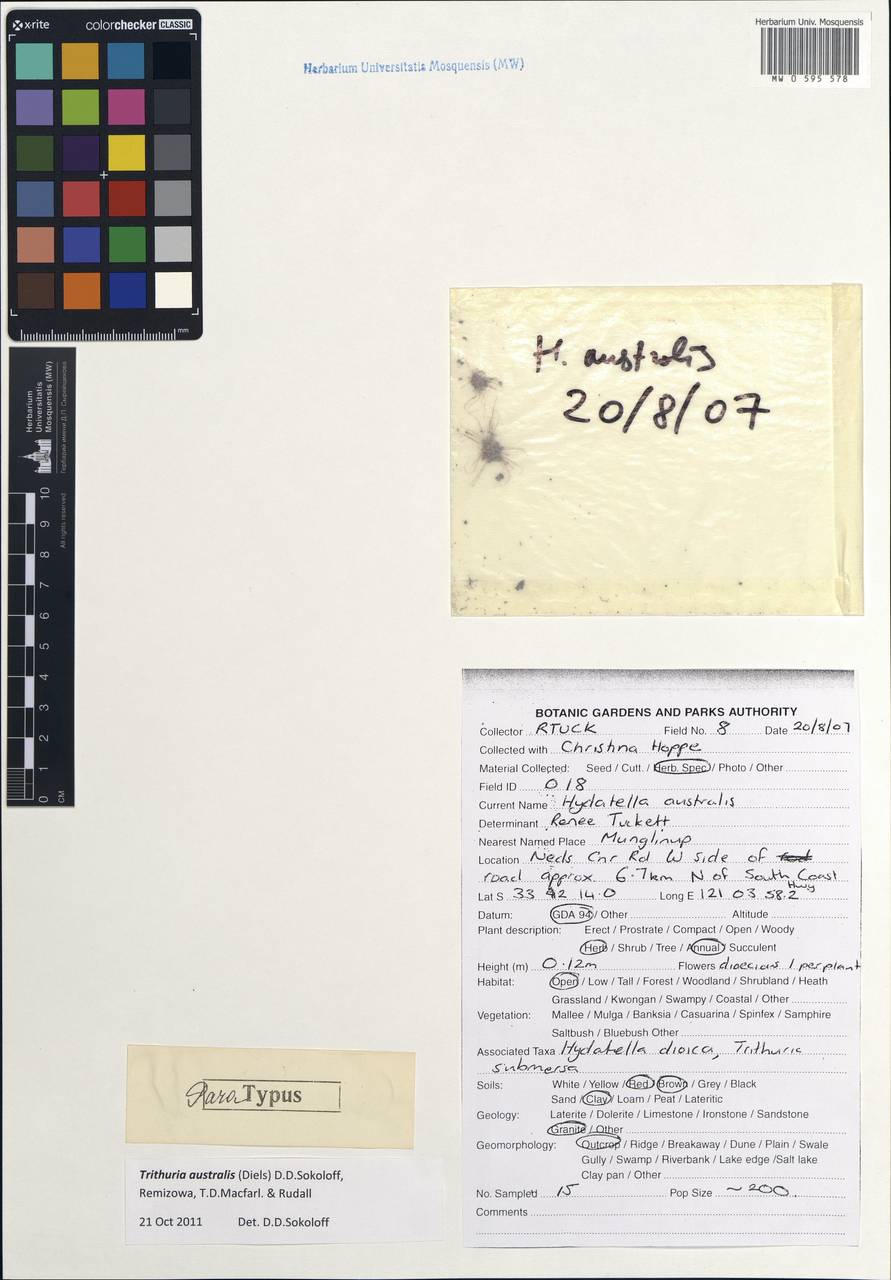 x-rite colorchecker CLASSIC
mm
Herbarium Universitatis Mosquensis (MW)
Herbarium Univ. Mosquensis
MW 0 595 578
Herbarium
Universitatis
Mosquensis (MW)
Гербарий имени Д.П. Сырейщикова
All rights reserved
0 1 2 3 4 5 6 7 8 9 10
CM
H. australis
20/8/07
BOTANIC GARDENS AND PARKS AUTHORITY
Collector RTUCK Field No. 8 Date 20/8/07
Collected with Christina Hoppe
Material Collected: Seed / Cutt. / Herb. Spec / Photo / Other
Field ID 018
Current Name Hydatella australis
Determinant Renee Tuckett
Nearest Named Place Munglinup
Location Neds Cnr Rd W side of
road approx. 6.7km N of South Coast
Hwy
Lat S 33 42 14.0 Long E 121 03 58.2
Datum: GDA 94 / Other Altitude
Plant description: Erect / Prostrate / Compact / Open / Woody
Herb / Shrub / Tree / Annual / Succulent
Height (m) 0.12m Flowers dioecious 1 per plant
Habitat: Open / Low / Tall / Forest / Woodland / Shrubland / Heath
Grassland / Kwongan / Swampy / Coastal / Other
Vegetation: Mallee / Mulga / Banksia / Casuarina / Spinifex / Samphire
Saltbush / Bluebush Other
Associated Taxa Hydatella dioica, Trithuria
submersa
Soils: White / Yellow / Red / Brown / Grey / Black
Sand / Clay / Loam / Peat / Lateritic
Geology: Laterite / Dolerite / Limestone / Ironstone / Sandstone
Granite / Other
Geomorphology: Outcrop / Ridge / Breakaway / Dune / Plain / Swale
Gully / Swamp / Riverbank / Lake edge /Salt lake
Clay pan / Other
No. Sampled 15 Pop Size ~200
Comments
Para Typus
Trithuria australis (Diels) D.D.Sokoloff,
Remizowa, T.D.Macfarl. & Rudall
21 Oct 2011 Det. D.D.Sokoloff